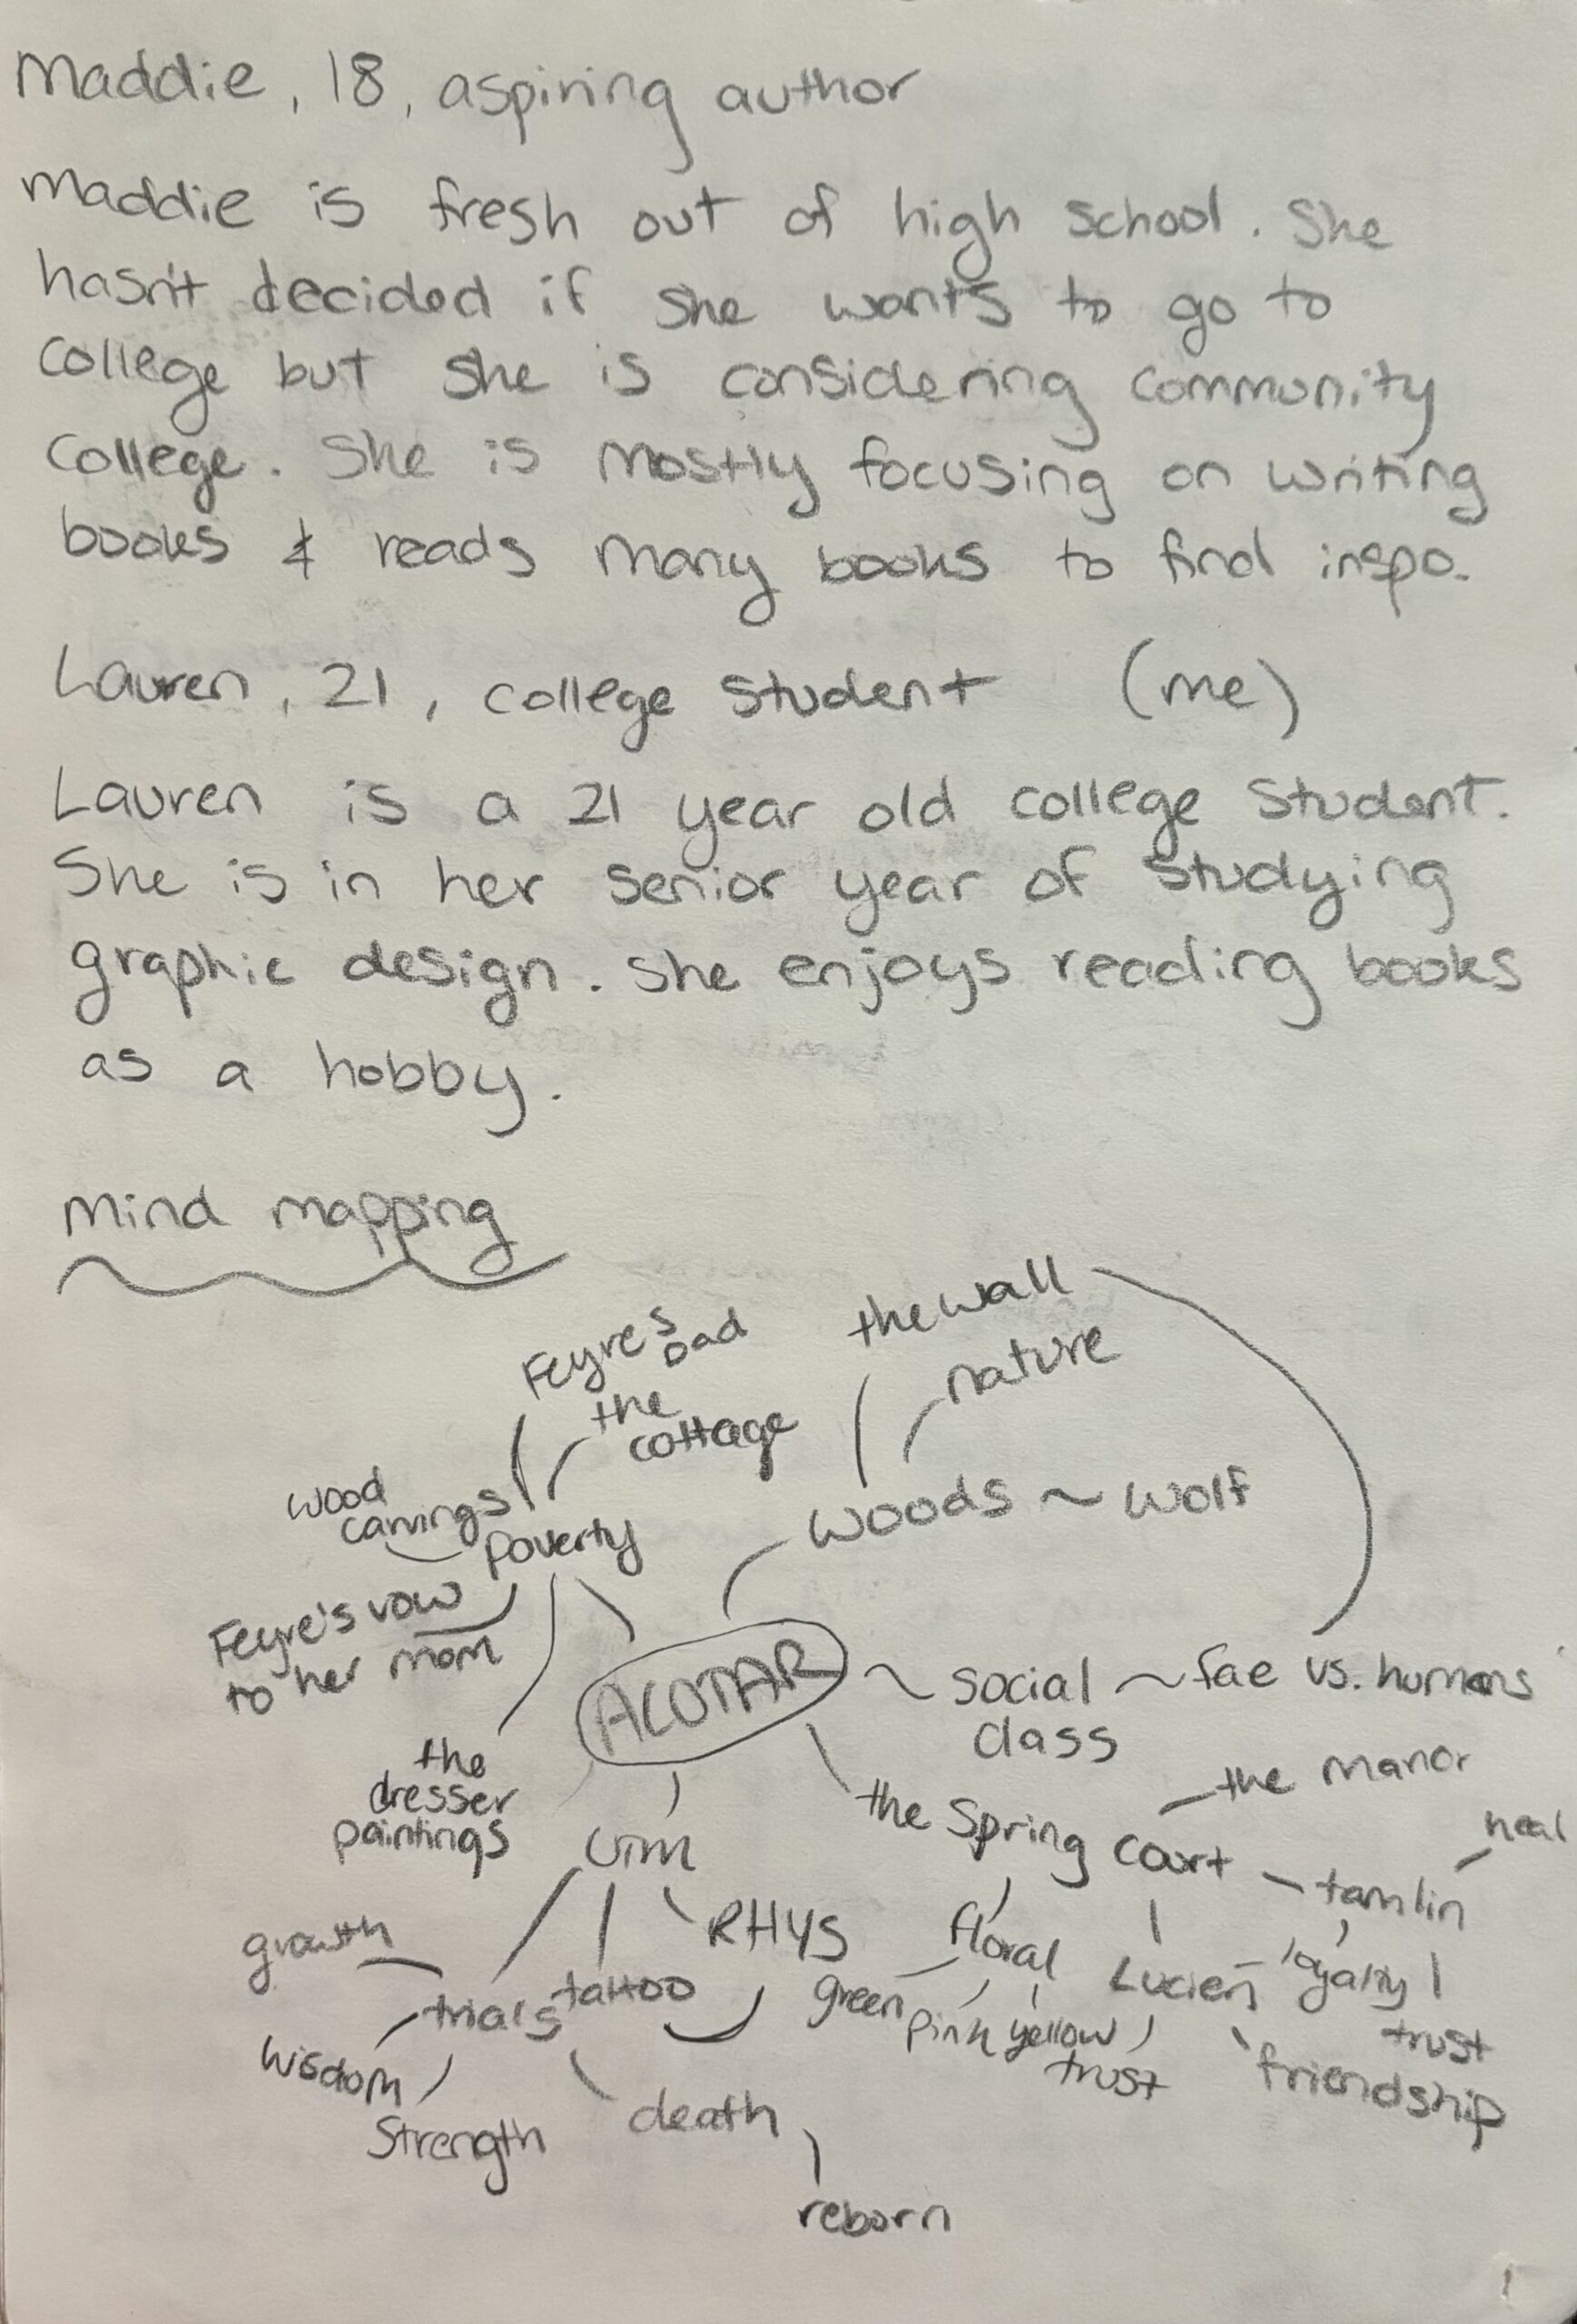 Maddie, 18, aspiring author
Maddie is fresh out of high school. She
hasn't decided if she wants to go to
college but she is considering community
college. She is mostly focusing on writing
books & reads many books to find inspo.
Lauren, 21, college student (me)
Lauren is a 21 year old college student.
She is in her senior year of studying
graphic design. She enjoys reading books
as a hobby.
Mind mapping
Feyre's
Dad
the
cottage
the wall
nature
wood
carvings
poverty
woods ~ wolf
Feyre's vow
to her mom
ACOTAR
social
class
fae vs. humans
the
dresser
paintings
UTM
the Spring Court
the manor
tamlin
heal
growth
trials
tattoo
RHYS
floral
green
pink
yellow
Lucien
loyalty
trust
trust
friendship
wisdom
strength
death
reborn
1